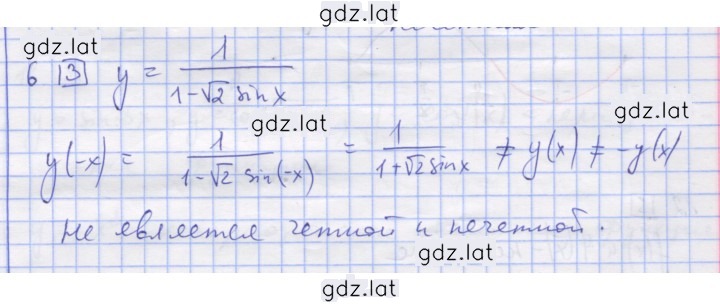 gdz.lat
gdz.lat
6 3 y = 1 / (1-√2 sin x)
gdz.lat
gdz.lat
y(-x) = 1 / (1-√2 sin(-x)) = 1 / (1+√2 sin x) ≠ y(x) ≠ -y(x)
не является четной и нечетной.
gdz.lat
gdz.lat